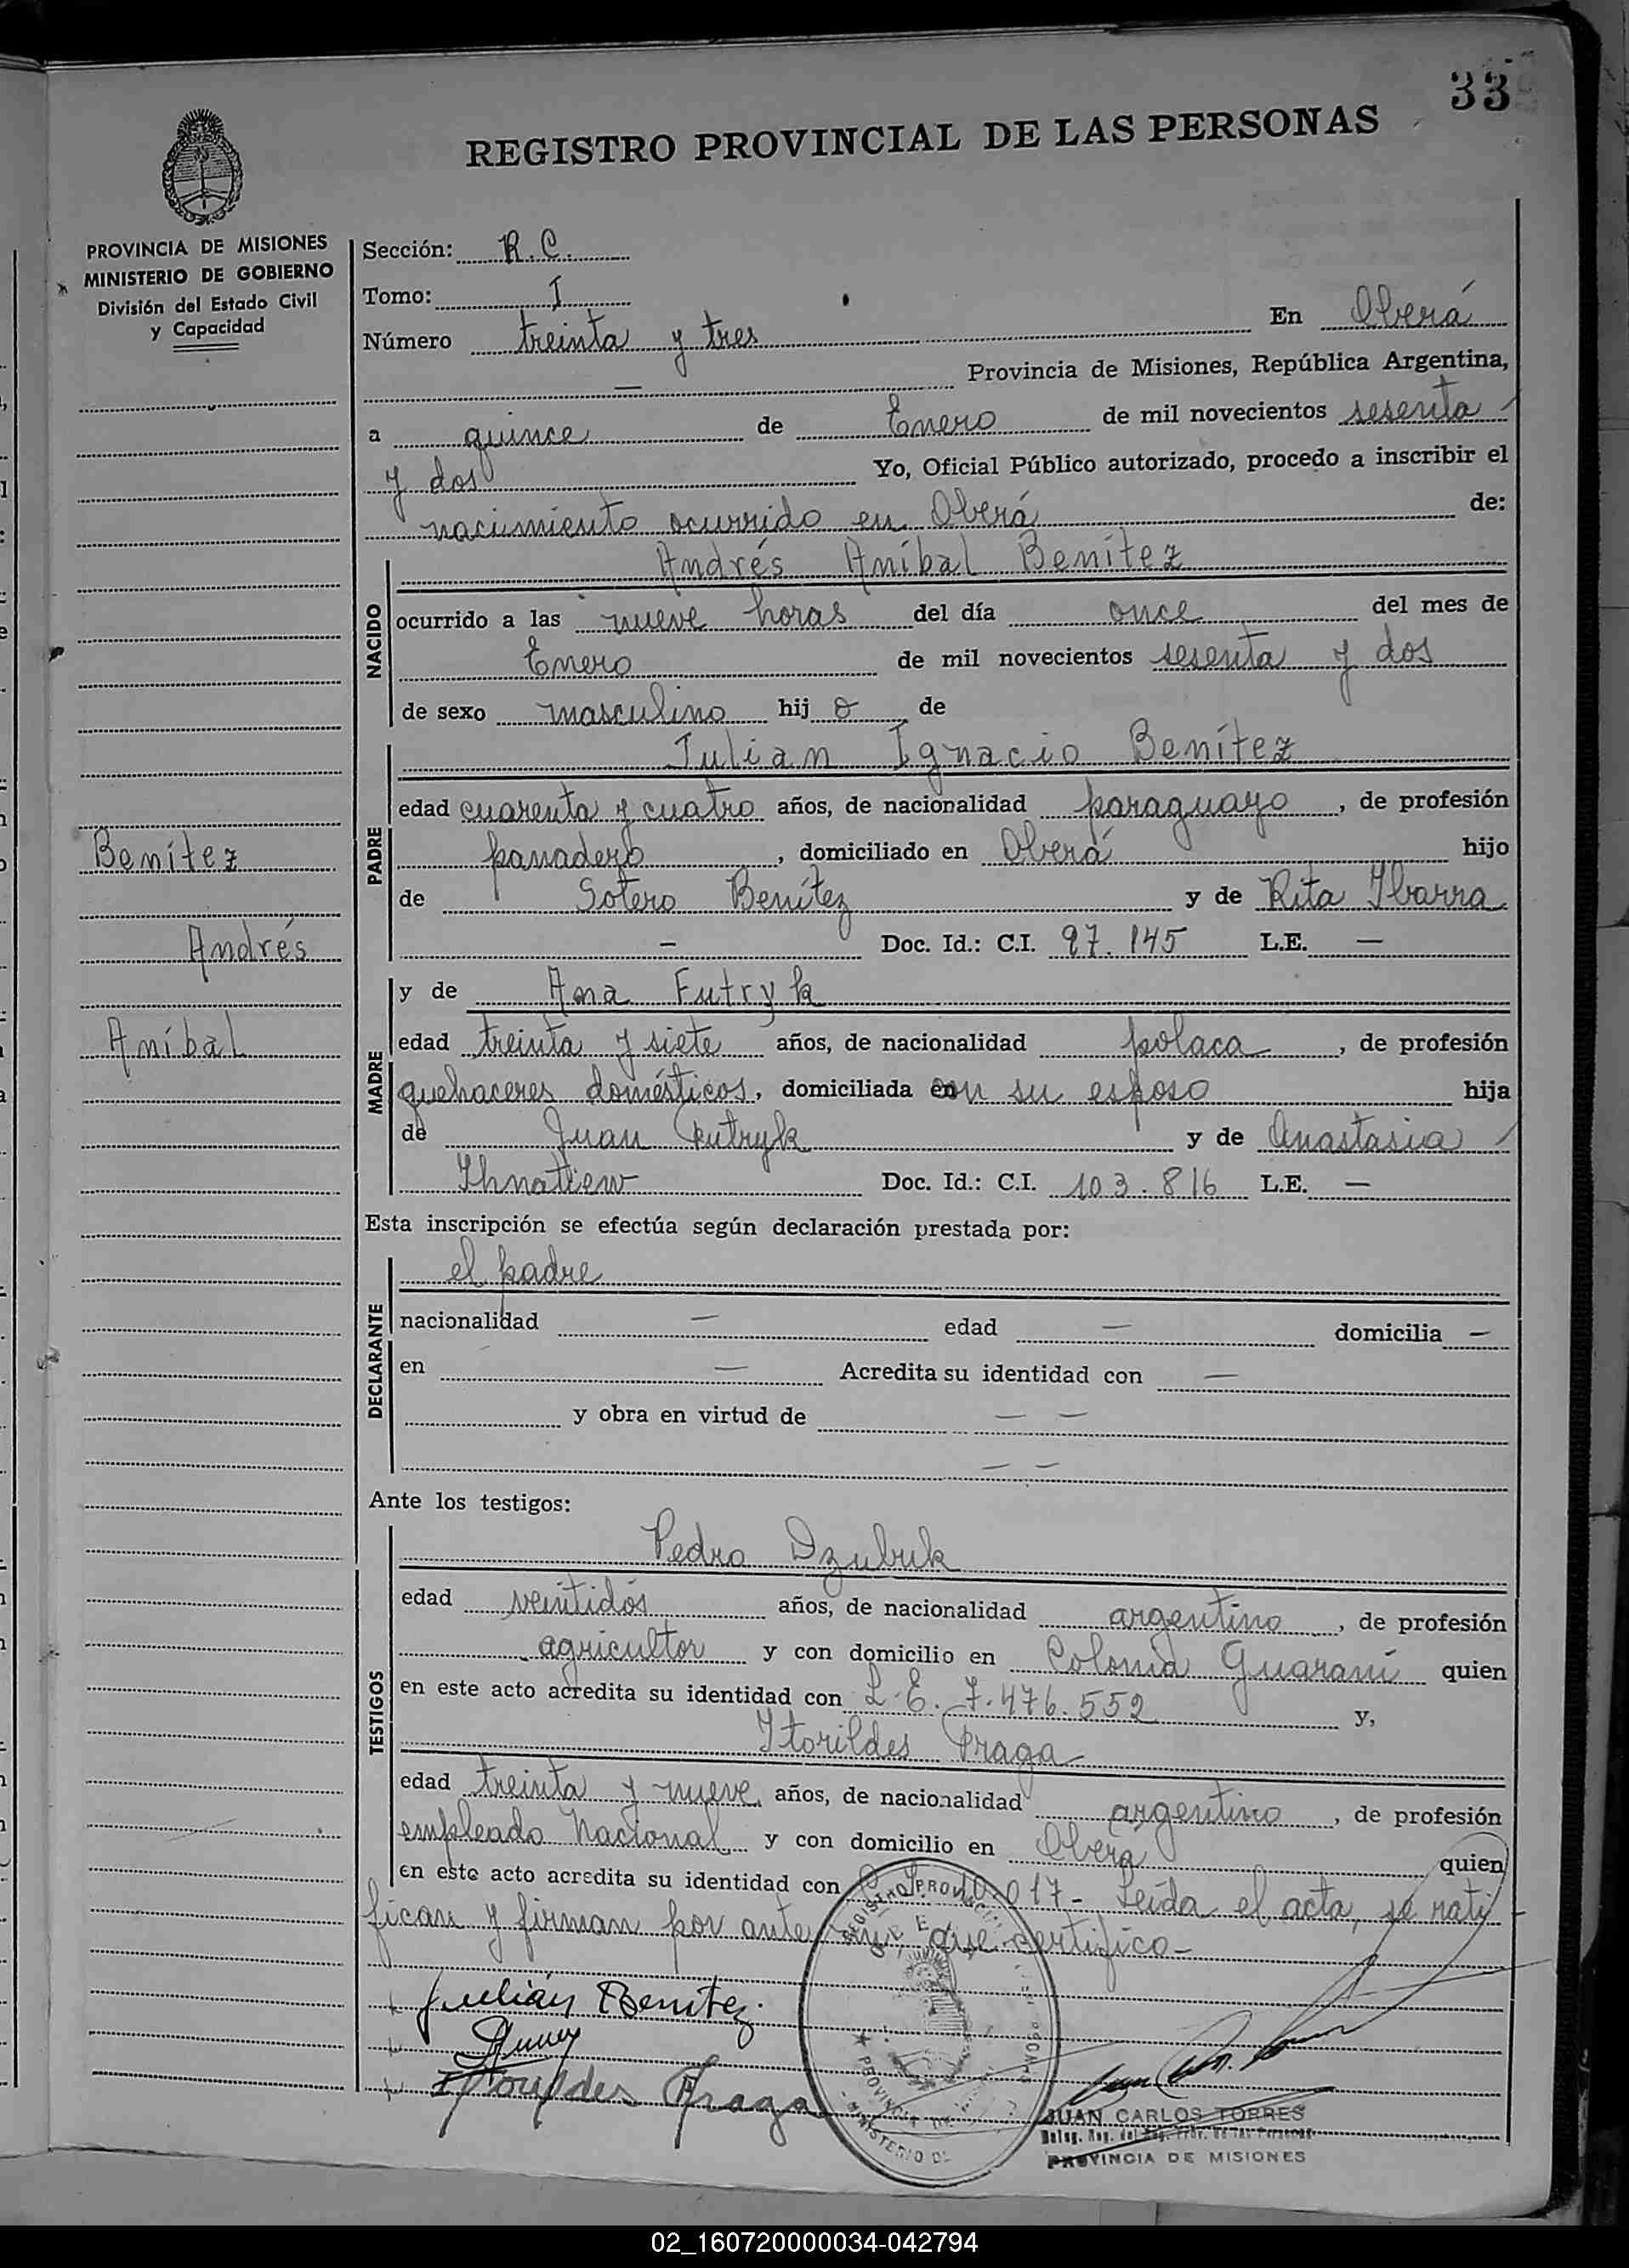 33
REGISTRO PROVINCIAL DE LAS PERSONAS
PROVINCIA DE MISIONES
MINISTERIO DE GOBIERNO
División del Estado Civil
y Capacidad
Benítez
Andrés
Aníbal
Sección: R.C.
Tomo: I
Número treinta y tres En Oberá
— Provincia de Misiones, República Argentina,
a quince de Enero de mil novecientos sesenta
y dos Yo, Oficial Público autorizado, procedo a inscribir el
nacimiento ocurrido en Oberá de:
NACIDO
Andrés Aníbal Benítez
ocurrido a las nueve horas del día once del mes de
Enero de mil novecientos sesenta y dos
de sexo masculino hij o de
PADRE
Julian Ignacio Benítez
edad cuarenta y cuatro años, de nacionalidad paraguayo, de profesión
panadero, domiciliado en Oberá hijo
de Sotero Benítez y de Rita Ibarra
— Doc. Id.: C.I. 97.145 L.E. —
MADRE
y de Ana Futryk
edad treinta y siete años, de nacionalidad polaca, de profesión
quehaceres domésticos, domiciliada con su esposo hija
de Juan Futryk y de Anastasia
Ihnatiew Doc. Id.: C.I. 103.816 L.E. —
Esta inscripción se efectúa según declaración prestada por:
DECLARANTE
el padre
nacionalidad — edad — domicilia —
en — Acredita su identidad con —
y obra en virtud de — —
— —
Ante los testigos:
TESTIGOS
Pedro Dzubuk
edad veintidós años, de nacionalidad argentino, de profesión
agricultor y con domicilio en Colonia Guaraní quien
en este acto acredita su identidad con L.E. 7.476.552 y,
Itorildes Fraga
edad treinta y nueve años, de nacionalidad argentino, de profesión
empleado Nacional y con domicilio en Oberá quien
en este acto acredita su identidad con 017- Leída el acta, se rati
fican y firman por ante mí que certifico-
Julián Benítez.
Fraga
JUAN CARLOS TORRES
PROVINCIA DE MISIONES
02_160720000034-042794